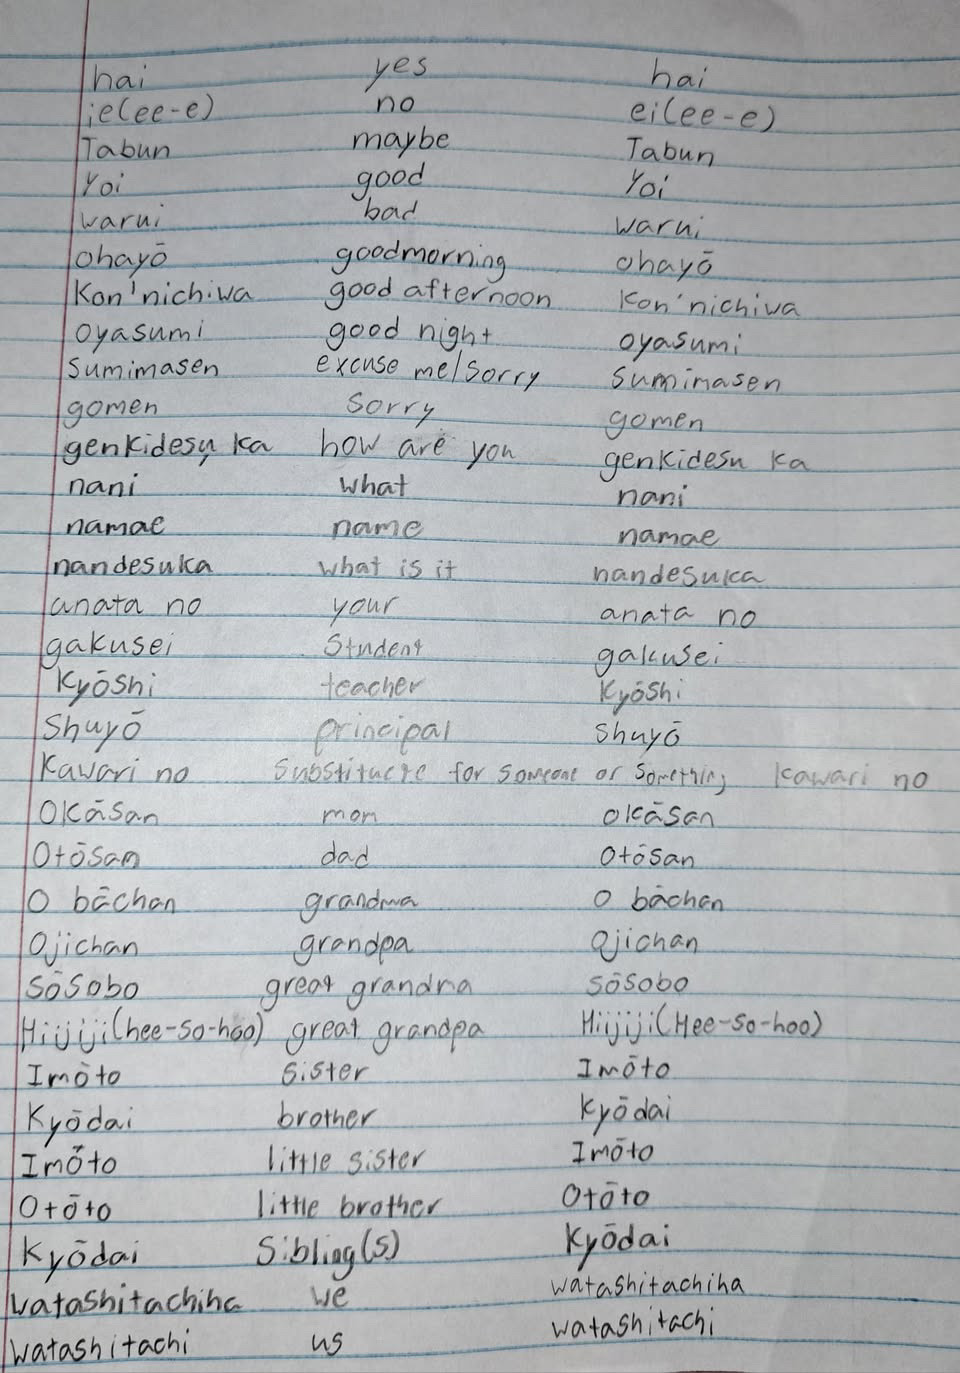 hai yes hai
ie(ee-e) no ei(ee-e)
Tabun maybe Tabun
Yoi good Yoi
warui bad warui
ohayō goodmorning ohayō
Kon'nichiwa good afternoon Kon'nichiwa
oyasumi good night oyasumi
Sumimasen excuse me/sorry Sumimasen
gomen sorry gomen
genkidesu ka how are you genkidesu ka
nani what nani
namae name namae
nandesuka what is it nandesuka
anata no your anata no
gakusei Student gakusei
Kyōshi teacher Kyōshi
Shuyō principal Shuyō
Kawari no Substitute for someone or something Kawari no
Okāsan mom Okāsan
Otōsan dad Otōsan
O bāchan grandma O bāchan
Ojichan grandpa Ojichan
Sōsobo great grandma sōsobo
Hijiji(hee-so-hoo) great grandpa Hijiji(Hee-so-hoo)
Imōto sister Imōto
Kyōdai brother Kyōdai
Imōto little sister Imōto
Otōto little brother Otōto
Kyōdai Sibling(s) Kyōdai
watashitachiha we watashitachiha
watashitachi us watashitachi